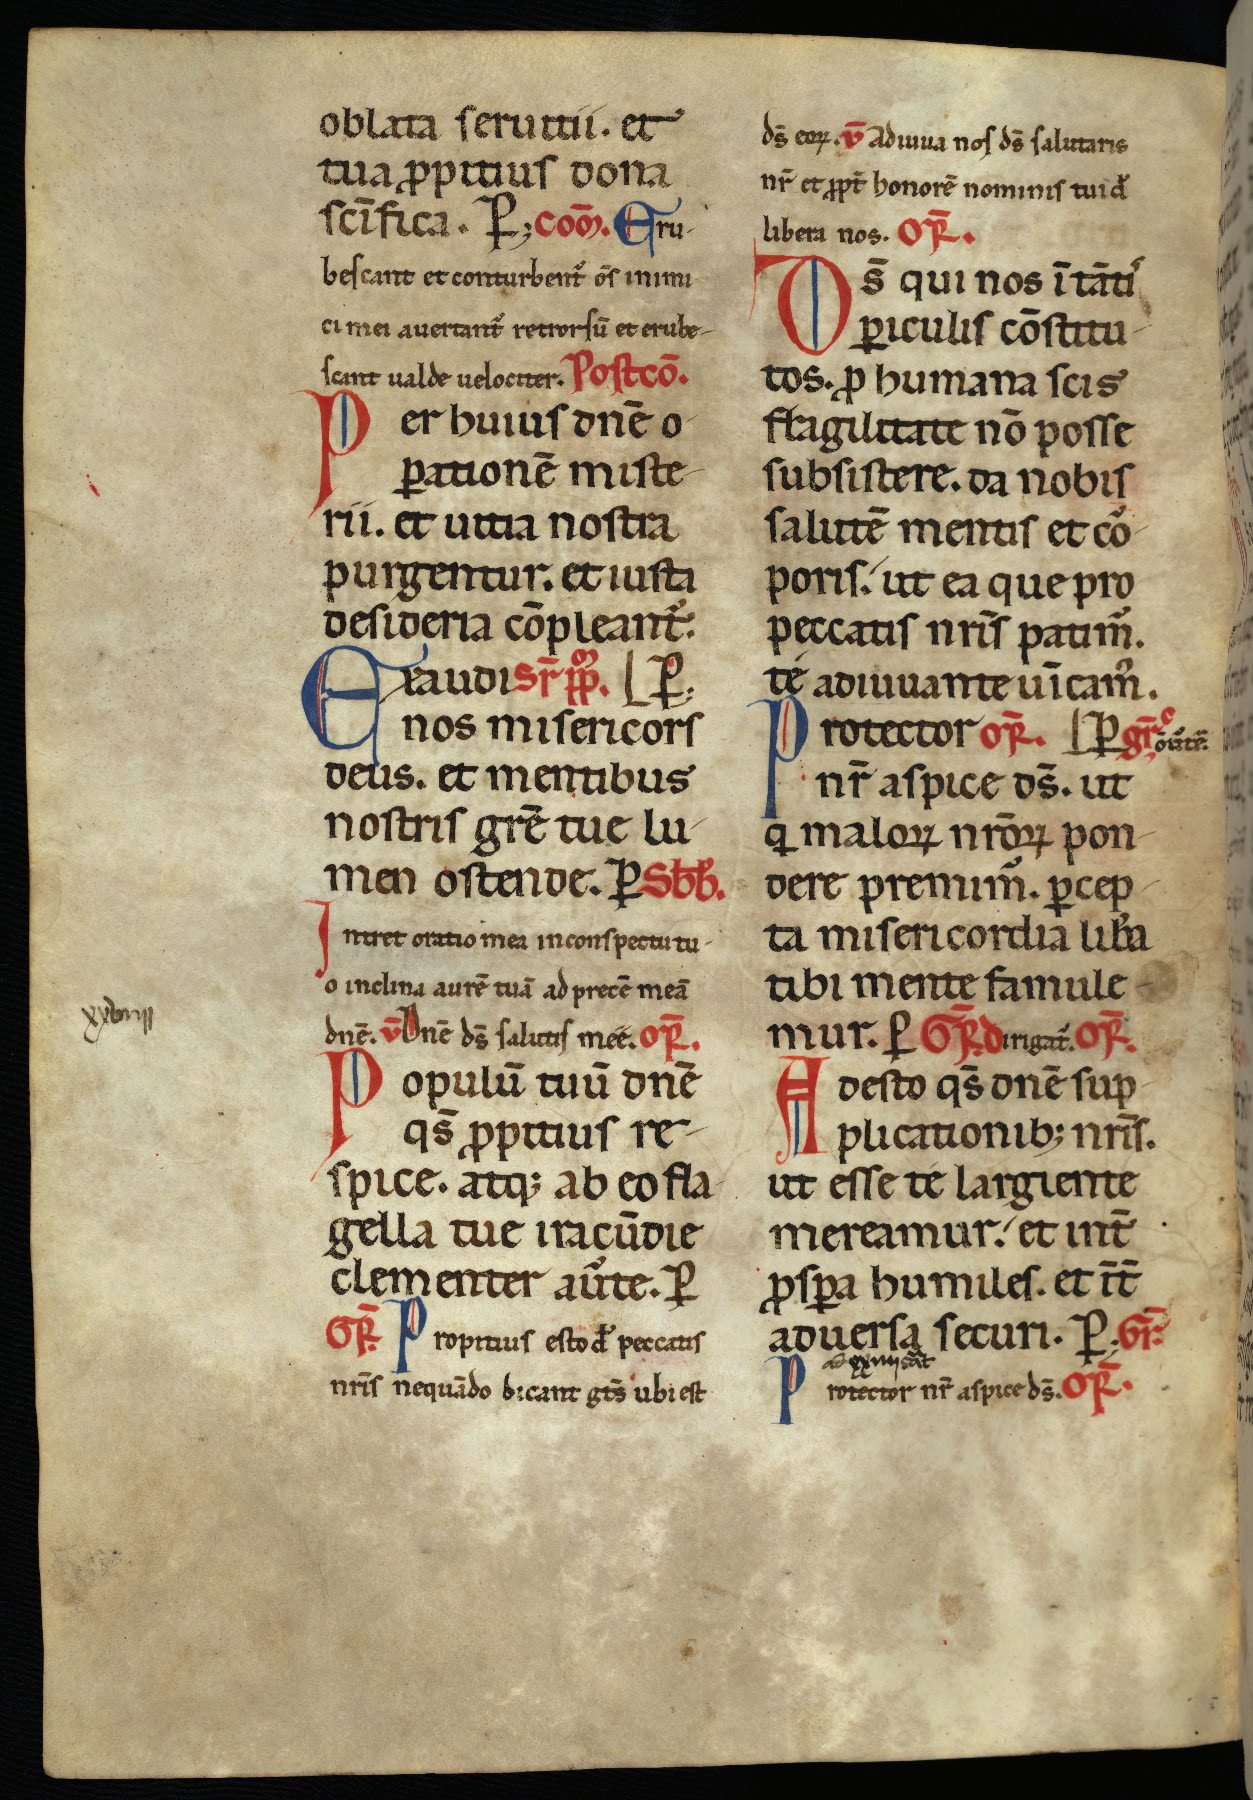 oblata seruitii. et
tua ꝓpitius dona
sc̄ifica. P̱; com̄. Eru-
bescant et conturbent᷑ om̄s inimi
ci mei auertant᷑ retrorsū et erube-
scant ualde uelociter. Postcō.
Per huius dnē o-
ꝑationē miste-
rii. et uitia nostra
purgentur. et iusta
desideria cōpleant᷑.
Exaudi sr̄ pp̄m. P̱;
nos misericors
deus. et mentibus
nostris gr̄e tue lu-
men ostende. P̱ Sbb̄.
Intret oratio mea in conspectu tu-
o inclina aurē tuā ad precē meā
dnē. v̄ Dnē ds̄ salutis meé. oꝶ.
Populū tuū dnē
qs̄ ꝓpitius re-
spice. atq; ab eo fla-
gella tue iracūdie
clementer au᷑te. P̱
Gꝶ. Propitius esto dn̄e peccatis
nrīs nequādo dicant gtēs ubi est
ds̄ eoꝝ. v̄ Adiuua nos ds̄ salutaris
nr̄ et ꝓpt̄ honorē nominis tui dn̄e
libera nos. Oꝶ.
Ds̄ qui nos ī tātis
ꝑiculis cōstitu-
tos. ꝓ humana scis
fragilitate nō posse
subsistere. da nobis
salutē mentis et cor-
poris. ut ea que pro
peccatis nrīs patim᷑.
té adiuuante uīcam᷑.
Protector oꝶ. P̱ gr̄ c̄ou᷑tē.
nr̄ aspice ds̄. ut
q malorꝝ nrōꝝ pon-
dere premim᷑. ꝑcep-
ta misericordia lib᷑a
tibi mente famule-
mur. P̱ Gꝶ. Dirigat᷑. Oꝶ.
Adesto qs̄ dnē sup-
plicationib; nrīs.
ut esse té largiente
mereamur. et int̄
ꝓsꝑa humiles. et īt̄
aduersa securi. P̱; Gr̄.
Protector nr̄ aspice ds̄. Oꝶ.